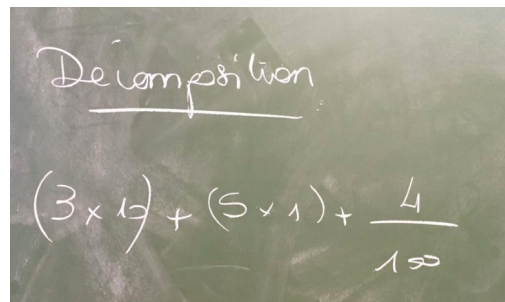 Décomposition
(3 x 10) + (5 x 1) + 4/100